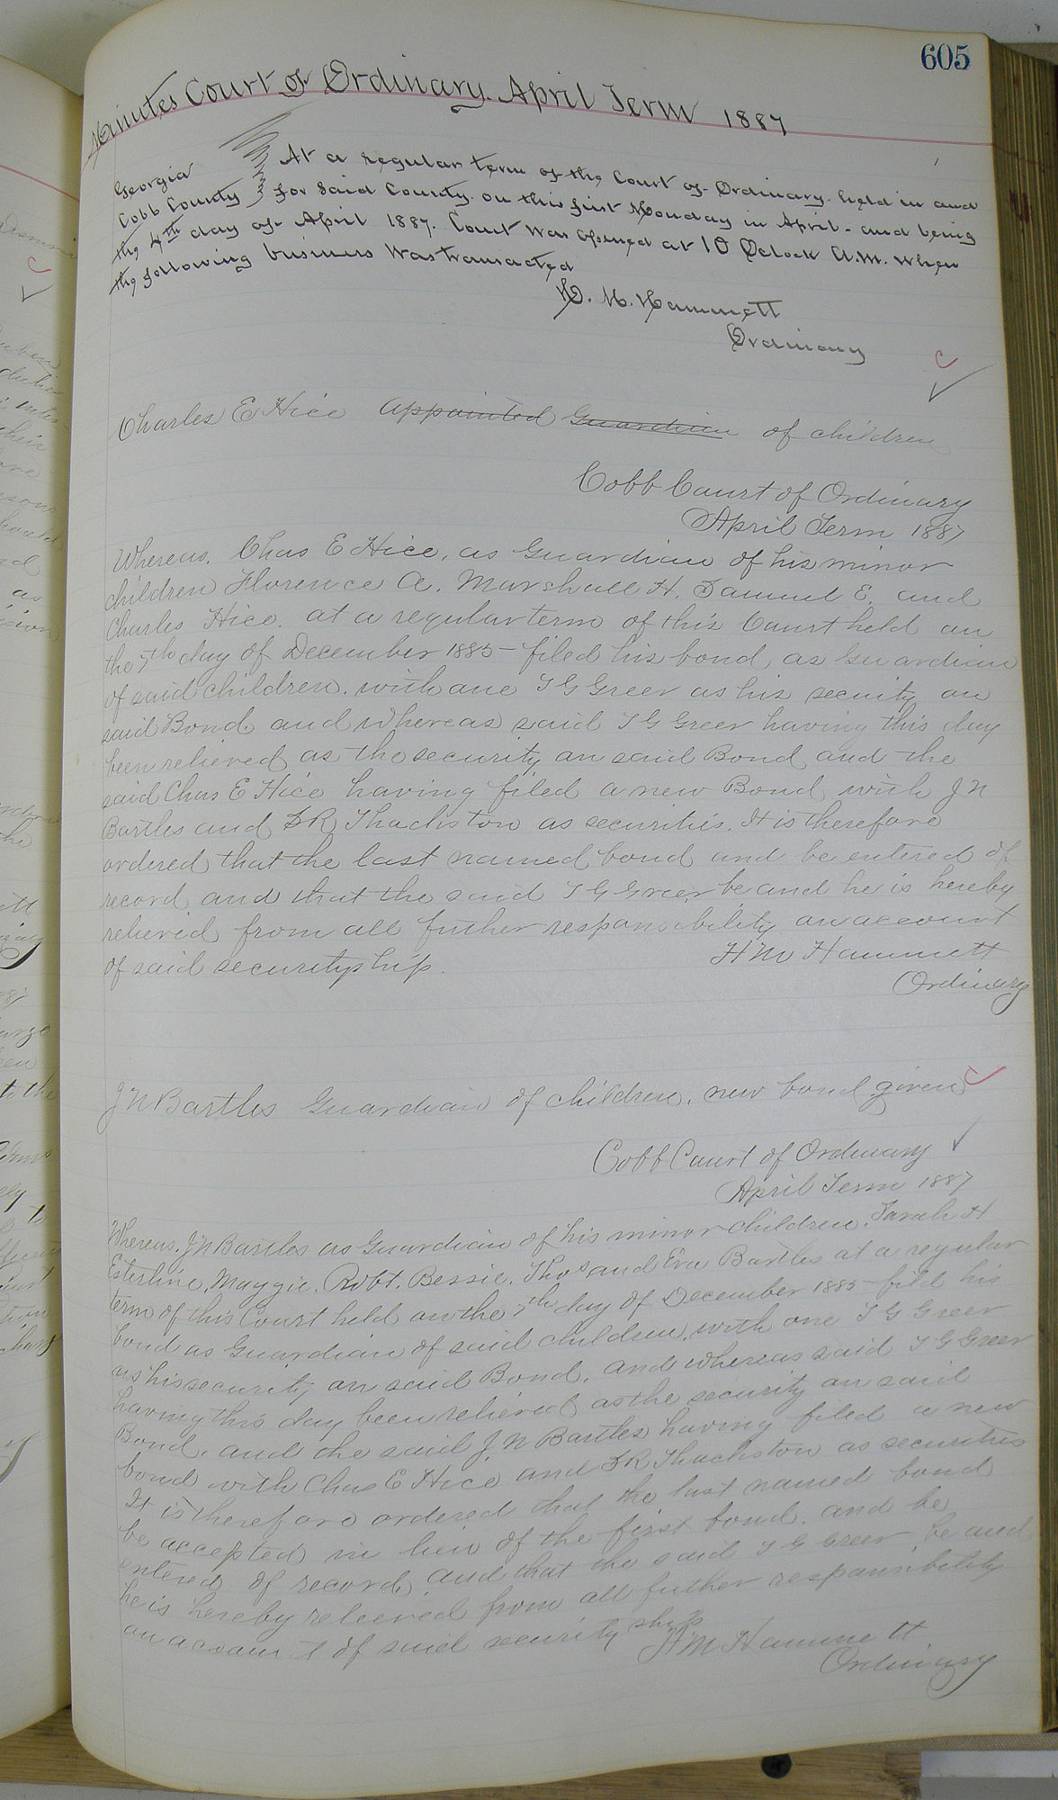 605
Minutes Court of Ordinary. April Term 1887
Georgia
Cobb County
At a regular term of the Court of Ordinary held in and
for said County on this first Monday in April - and being
the 4th day of April 1887. Court was opened at 10 Oclock A.M. when
the following business was transacted
H. M. Hammett
Ordinary
Charles E Hice appointed Guardian of children
Cobb Court of Ordinary
April Term 1887
Whereas, Chas E Hice, as Guardian of his minor
children Florence A. Marshall H. Samuel E. and
Charles Hice. at a regular term of this Court held on
the 7th day of December 1885 - filed his bond, as Guardian
of said children. with one T G Greer as his secuity on
said Bond and whereas said T G Greer having this day
been relieved as the security on said Bond and the
said Chas E Hice having filed a new Bond with J N
Bartles and D R Thackston as securities. It is therefore
ordered that the last named bond and be entered of
record and that the said T G Greer be and he is hereby
relieved from all futher responsibility on account
of said securityship.
H M Hammett
Ordinary
J N Bartles Guardian of children. new bond given
Cobb Court of Ordinary
April Term 1887
Whereas. J N Bartles as Guardian of his minor children. Sarah H
Esterline, Maggie. Robt. Bessie. Thos and Eva Bartles at a regular
term of this Court held on the 7th day of December 1885 - filed his
bond as Guardian of said children. with one T G Greer
as his security on said Bond. and whereas said T G Greer
having this day been relieved as the security on said
Bond. and the said J N Bartles having filed a new
bond with Chas E Hice and D R Thackston as securities
It is therefore ordered that the last named bond
be accepted in lieu of the first bond. and be
entered of record. and that the said T G Greer be and
he is hereby releived from all futher responsibility
on account of said security ship
H M Hammett
Ordinary